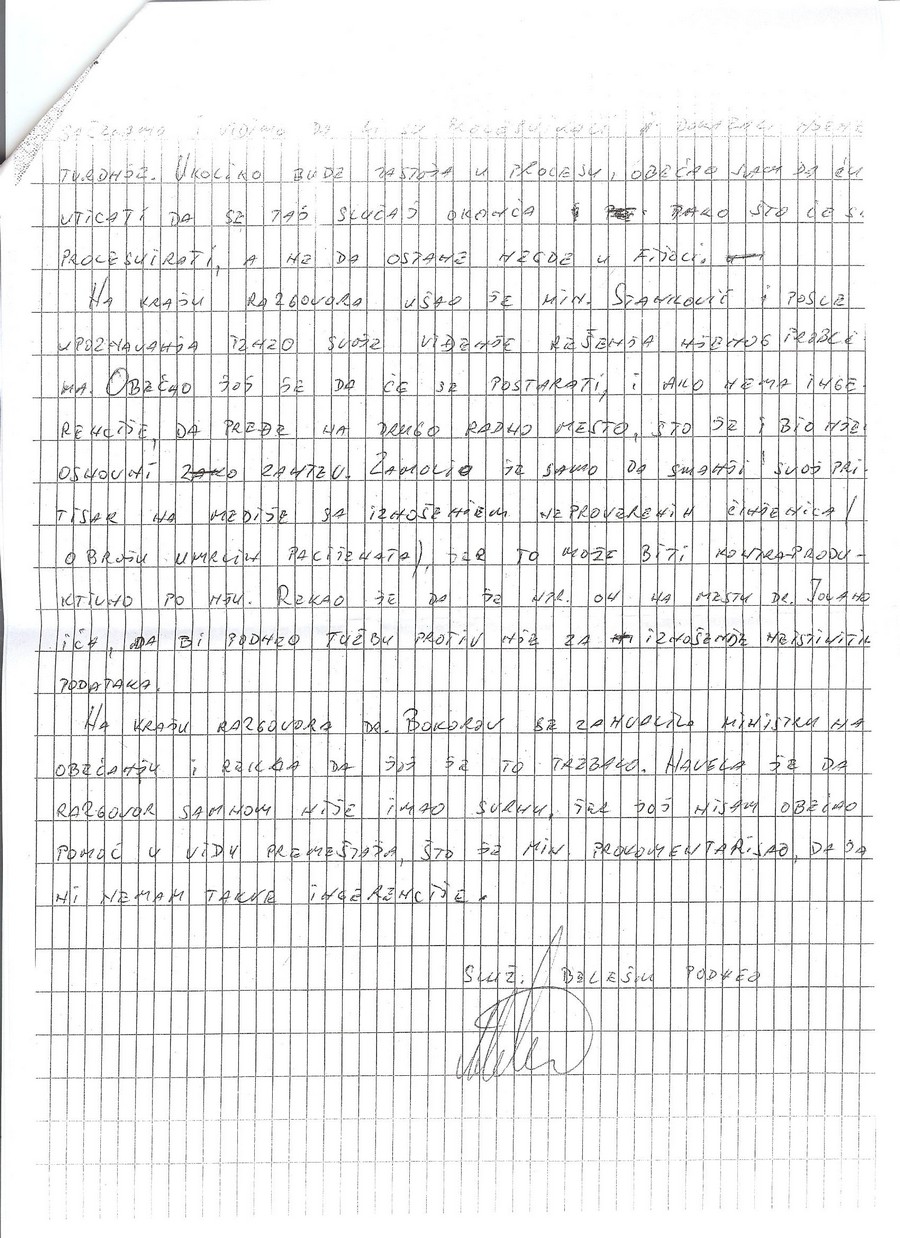 SAČEKAMO I VIDIMO DA LI SU PROCESUIRALI I DOKAZALI NJENE
TVRDNJE. UKOLIKO BUDE ZASTOJA U PROCESU, OBEĆAO SAM DA ĆU
UTICATI DA SE TAJ SLUČAJ OKONČA TAKO ŠTO ĆE SE
PROCESUIRATI, A NE DA OSTANE NEGDE U FIJOCI.
NA KRAJU RAZGOVORA UŠAO JE MIN. STANKOVIĆ I POSLE
UPOZNAVANJA IZNEO SVOJE VIĐENJE REŠENJA NJENOG PROBLE
MA. OBEĆAO JOJ JE DA ĆE SE POSTARATI, I AKO NEMA INGE
RENCIJE, DA PREĐE NA DRUGO RADNO MESTO, ŠTO JE I BIO NJE
OSNOVNI ZAHTEV. ZAMOLIO JE SAMO DA SMANJI SVOJ PRI-
TISAK NA MEDIJE SA IZNOŠENJEM NEPROVERENIH ČINJENICA (
O BROJU UMRLIH PACIJENATA), JER TO MOŽE BITI KONTRAPRODU-
KTIVNO PO NJU. REKAO JE DA JE NPR. ON NA MESTU DR. JOVANO
IĆA, DA BI PODNEO TUŽBU PROTIV NJE ZA IZNOŠENJE NEISTINITIH
PODATAKA.
NA KRAJU RAZGOVORA DR. BOKOROV SE ZAHVALILA MINISTRU NA
OBEĆANJU I REKLA DA JOJ JE TO TREBALO. NAVELA JE DA
RAZGOVOR SAMNOM NIJE IMAO SVRHU, JER JOJ NISAM OBEĆAO
POMOĆ U VIDU PREMEŠTAJA, ŠTO JE MIN. PROKOMENTARISAO, DA JA
NI NEMAM TAKVE INGERENCIJE.
SLUŽ. BELEŠKU PODNEO